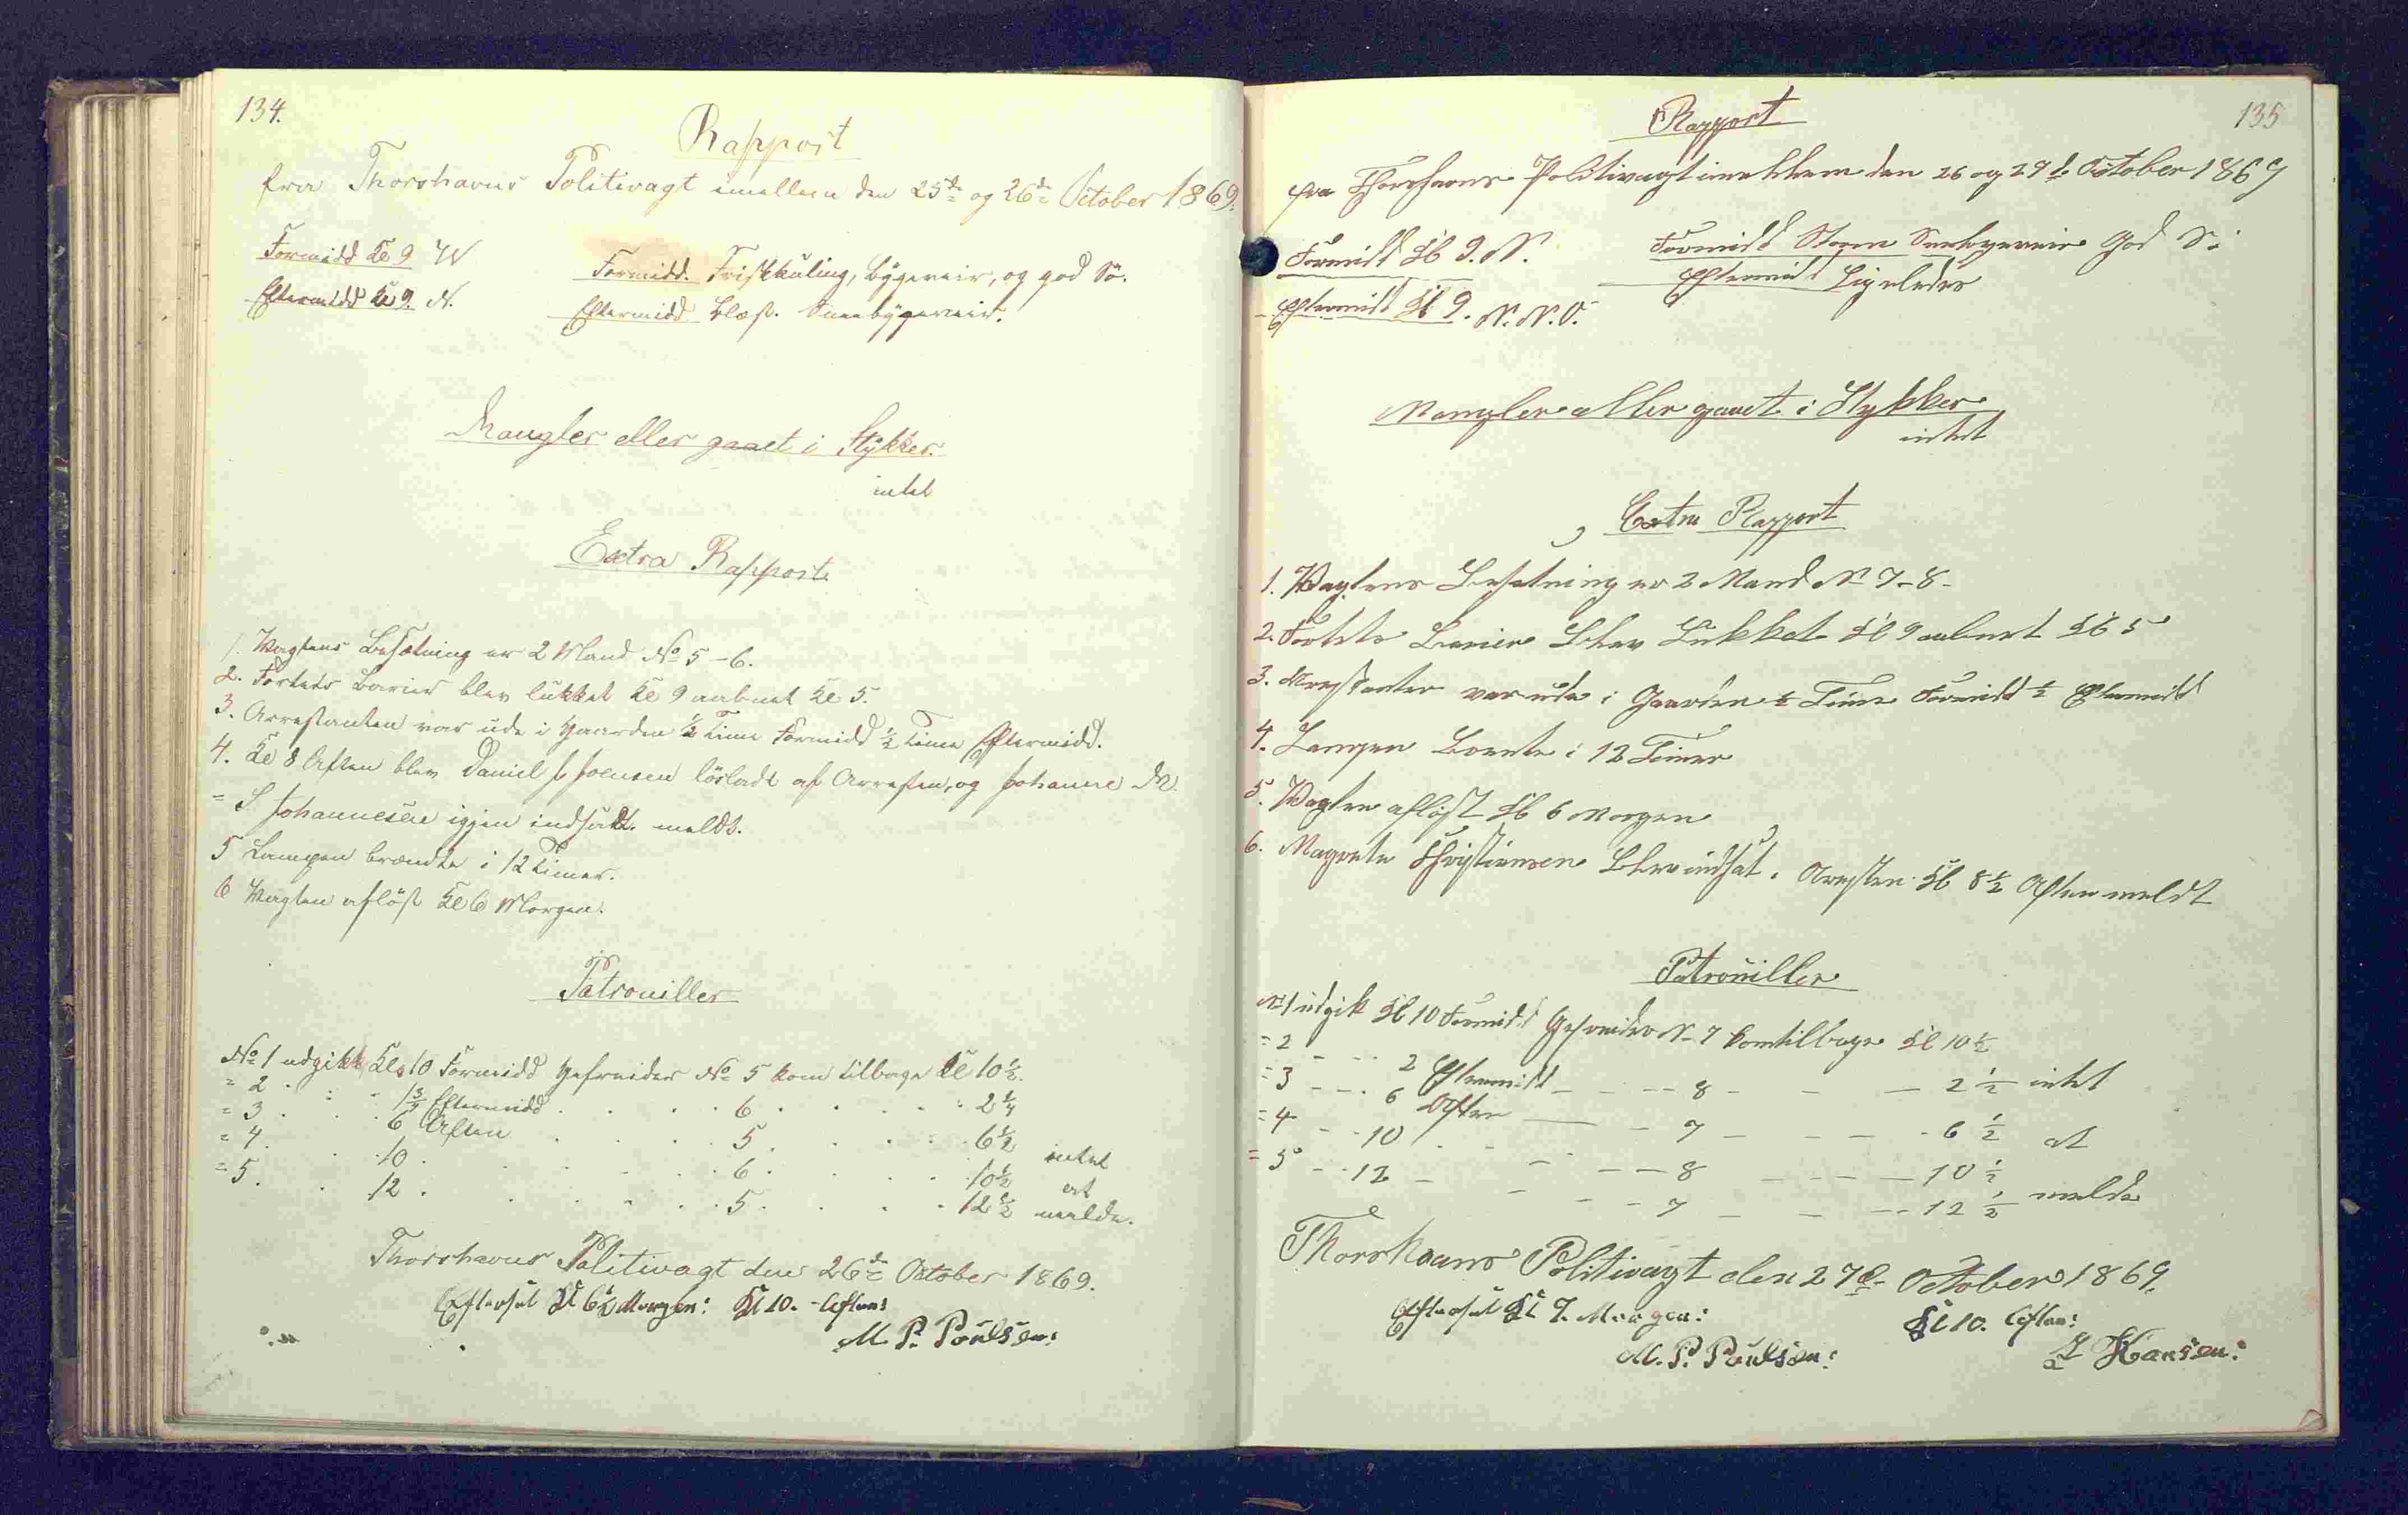 134.
Rapport
fra Thorshavns Politivagt imellem den 25de og 26de October 1869.
Formidd Kl 9 W
Formidd. Friskkuling, bygeveir, og god Sö.
Eftermidd Kl 9. N.
Eftermidd blæst. Sneebygeveir.
Mangler eller gaaet i Stykker.
intet
Extra Rapport.
1. Vagtens Besætning er 2 Mand No 5-6.
2. Fortets Barier blev lukket Kl 9 aabnet Kl 5.
3. Arrestanten var ude i Gaarden ½ Time Formidd ½ Time Eftermidd.
4. Kl 8 Aften blev Daniel J Joensen lösladt af Arresten, og Johanne M.
= S Johannesen igjen indsadt. meldt.
5 Lampen brændte i 12 Timer.
6 Vagten aflöst Kl 6 Morgen.
Patrouiller
No 1 udgikk Kl 10 Formidd Gefreider No 5 kom tilbage Kl 10½.
= 2 . . . 1¾ Eftermidd . . . 6 . . . 2¼
= 3 . . . 6 Aften . . . 5 . . . 6½ intet
= 4 . . 10 . . . 6 . . . 10½ at
= 5 . . 12 . . . 5 . . . 12½ melde.
Thorshavns Politivagt den 26de October 1869.
Efterset Kl 6½ Morgen: Kl 10. Aften:
M. P. Poulsen:
135
Rapport
fra Thorshavns Politivagt imellem den 26 og 27 d. October 1869
Formidd Kl 9. N.
Formidd Storm Sneebygeveir God Sö
Eftermidd Kl 9. N.N.O.
Eftermidd Ligeledes
Mangler eller gaaet i Stykker
intet
Extra Rapport
1. Vagtens Besætning er 2 Mand No 7-8-
2. Fortets Barier blev Lukket Kl 9 aabnet Kl 5
3. Arrestanter var ude i Gaarden ½ Time Formidd ½ Eftermidd
4. Lampen brente i 12 Timer
5. Vagten aflöst Kl 6 Morgen
6. Magrete Christiansen blev indsat i Aresten Kl 8½ Aften meldt
Patrouiller
No 1 udgik Kl 10 Formidd Gefreider No 7 kom tilbage Kl 10½
= 2 - - - 2 Eftermidd - - - 8 - - - 2½ intet
= 3 - - - 6 Aften - - 7 - - - 6½ at
= 4 - - 10 - - - 8 - - - 10½ melde
= 5 - - 12 - - - 7 - - - 12½
Thorshavns Politivagt den 27de October 1869.
Efterset Kl 7. Morgen:
Kl 10. Aften:
M. P. Poulsen:
Hansen: